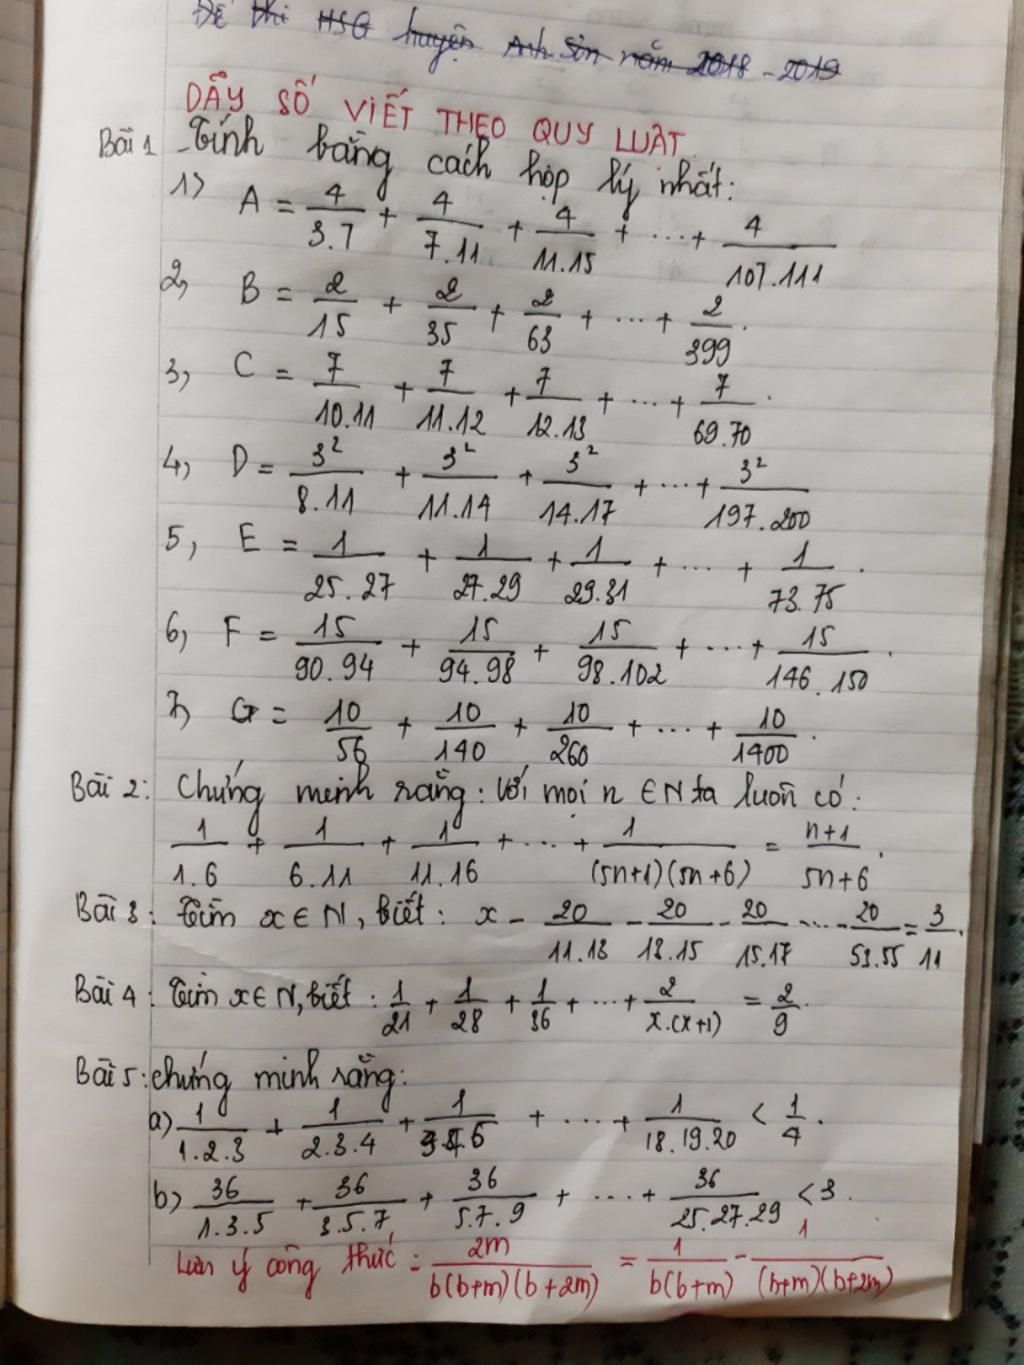 Đề thi HSG huyện Anh Sơn năm 2018 - 2019
DÃY SỐ VIẾT THEO QUY LUẬT
Bài 1 Tính bằng cách hợp lý nhất:
1) A = 4/3.7 + 4/7.11 + 4/11.15 + ... + 4/107.111
2, B = 2/15 + 2/35 + 2/63 + ... + 2/399.
3, C = 7/10.11 + 7/11.12 + 7/12.13 + ... + 7/69.70.
4, D = 3²/8.11 + 3²/11.14 + 3²/14.17 + ... + 3²/197.200
5, E = 1/25.27 + 1/27.29 + 1/29.31 + ... + 1/73.75.
6, F = 15/90.94 + 15/94.98 + 15/98.102 + ... + 15/146.150.
7, G = 10/56 + 10/140 + 10/260 + ... + 10/1400.
Bài 2: Chứng minh rằng: Với mọi n ∈ N ta luôn có:
1/1.6 + 1/6.11 + 1/11.16 + ... + 1/(5n+1)(5n+6) = n+1/5n+6.
Bài 3: Tìm x ∈ N, biết: x - 20/11.13 - 20/13.15 - 20/15.17 ... - 20/53.55 = 3/11.
Bài 4: Tìm x ∈ N, biết: 1/21 + 1/28 + 1/36 + ... + 2/x.(x+1) = 2/9.
Bài 5: Chứng minh rằng:
a) 1/1.2.3 + 1/2.3.4 + 1/ + ... + 1/18.19.20 < 1/4.
b) 36/1.3.5 + 36/3.5.7 + 36/5.7.9 + ... + 36/25.27.29 < 3.
Lưu ý công thức: 2m/b(b+m)(b+2m) = 1/b(b+m) - 1/(b+m)(b+2m)